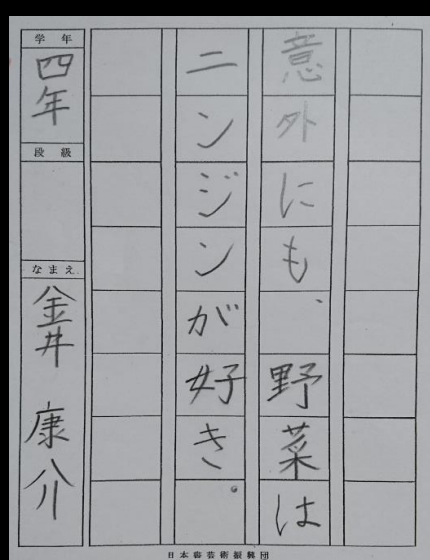 意外にも、野菜は
ニンジンが好き。
学年
四年
段級
なまえ
金井 康介
日本書芸術振興団